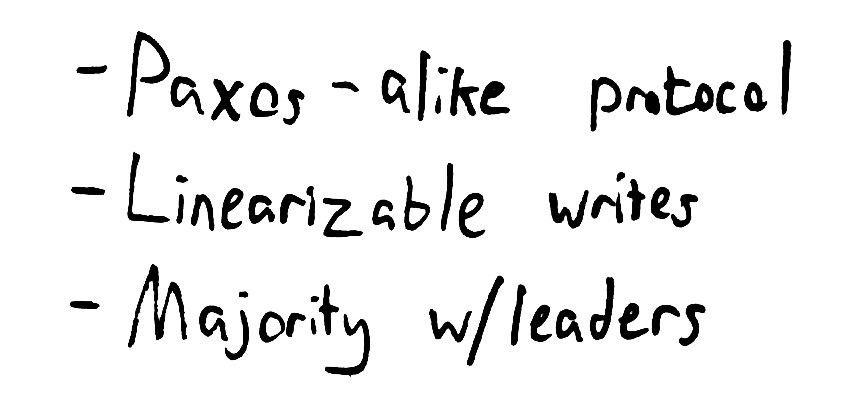 - Paxos-alike protocol
- Linearizable writes
- Majority w/leaders